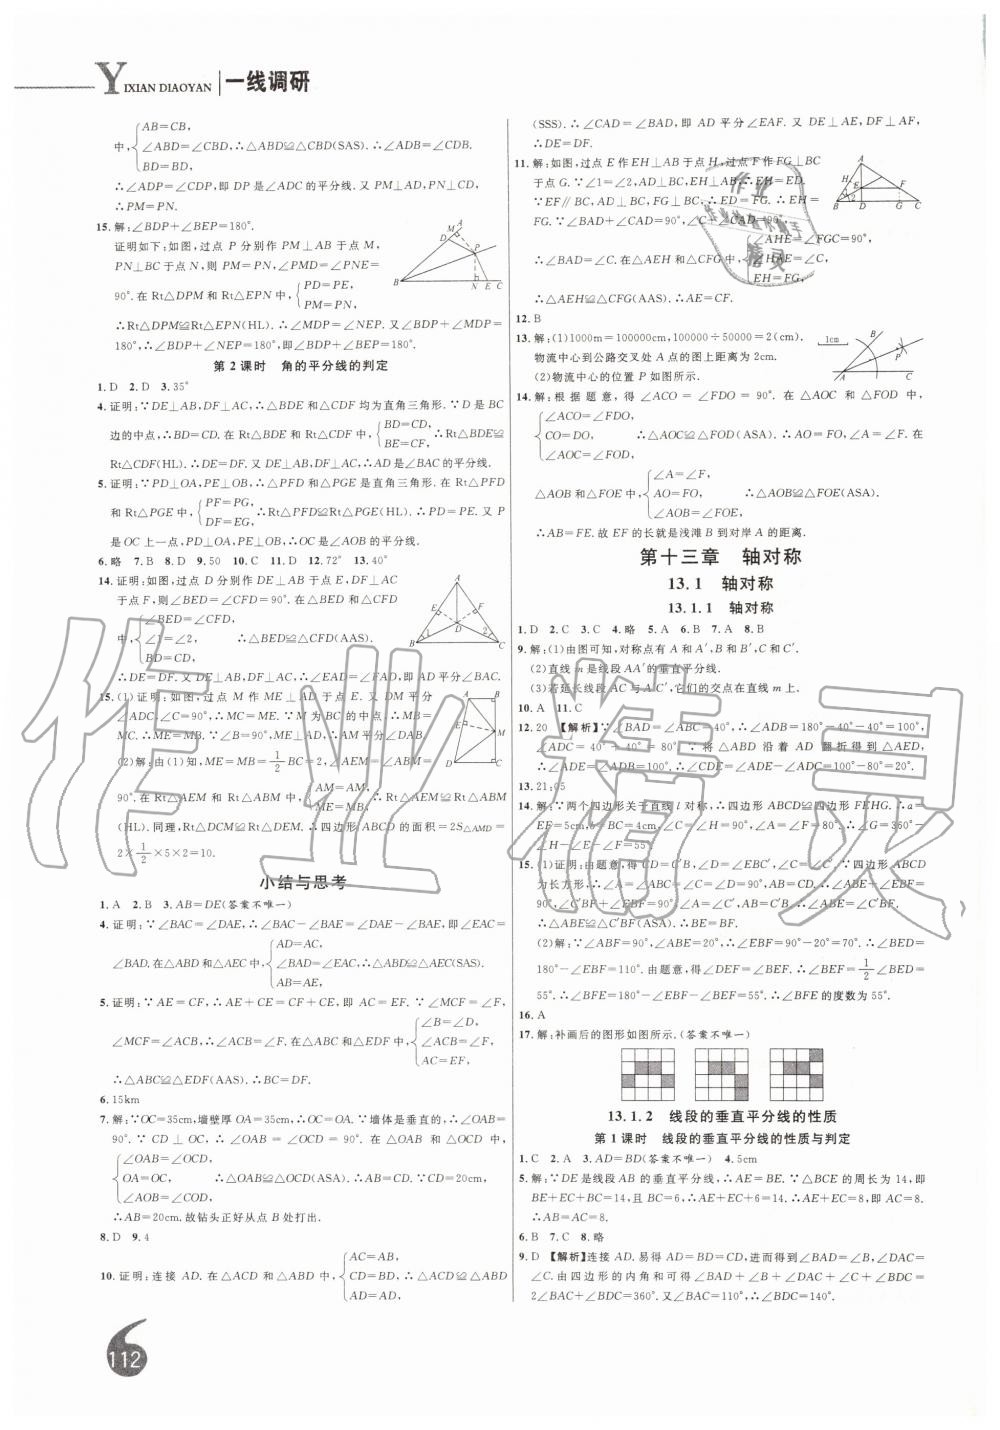 YIXIAN DIAOYAN 一线调研
AB=CB,
中,∠ABD=∠CBD,∴△ABD≌△CBD(SAS).∴∠ADB=∠CDB.
BD=BD,
∴∠ADP=∠CDP,即 DP 是∠ADC 的平分线.又 PM⊥AD,PN⊥CD,
∴PM=PN.
15.解:∠BDP+∠BEP=180°.
证明如下:如图,过点 P 分别作 PM⊥AB 于点 M,
PN⊥BC 于点 N,则 PM=PN,∠PMD=∠PNE=
90°.在 Rt△DPM 和 Rt△EPN 中,PD=PE,
PM=PN.
∴Rt△DPM≌Rt△EPN(HL).∴∠MDP=∠NEP.又∠BDP+∠MDP=
180°,∴∠BDP+∠NEP=180°,即∠BDP+∠BEP=180°.
第 2 课时 角的平分线的判定
1.D 2.D 3.35°
4.证明:∵DE⊥AB,DF⊥AC,∴△BDE 和△CDF 均为直角三角形.∵D 是 BC
边的中点,∴BD=CD.在 Rt△BDE 和 Rt△CDF 中,BD=CD,
BE=CF,
∴Rt△BDE≌
Rt△CDF(HL).∴DE=DF.又 DE⊥AB,DF⊥AC,∴AD 是∠BAC 的平分线.
5.证明:∵PD⊥OA,PE⊥OB,∴△PFD 和△PGE 是直角三角形.在 Rt△PFD
和 Rt△PGE 中,PF=PG,
DF=EG,
∴Rt△PFD≌Rt△PGE(HL).∴PD=PE.又 P
是 OC 上一点,PD⊥OA,PE⊥OB,∴OC 是∠AOB 的平分线.
6.略 7.B 8.D 9.50 10.C 11.D 12.72° 13.40°
14.证明:如图,过点 D 分别作 DE⊥AB 于点 E,DF⊥AC
于点 F,则∠BED=∠CFD=90°.在△BED 和△CFD
∠BED=∠CFD,
中,∠1=∠2, ∴△BED≌△CFD(AAS).
BD=CD.
∴DE=DF.又 DE⊥AB,DF⊥AC,∴∠EAD=∠FAD,即 AD平分∠BAC.
15.(1)证明:如图,过点 M 作 ME⊥AD 于点 E.又 DM 平分
∠ADC,∠C=90°,∴MC=ME.∵M 为 BC 的中点,∴MB=
MC.∴ME=MB.∵∠B=90°,ME⊥AD,∴AM 平分∠DAB.
(2)解:由(1)知,ME=MB=1/2BC=2,∠AEM=∠ABM=
90°.在 Rt△AEM 和 Rt△ABM 中,AM=AM,
ME=MB,
∴Rt△AEM≌Rt△ABM
(HL).同理,Rt△DCM≌Rt△DEM.∴四边形 ABCD 的面积=2S△AMD=
2×1/2×5×2=10.
小结与思考
1.A 2.B 3.AB=DE(答案不唯一)
4.证明:∵∠BAC=∠DAE,∴∠BAC-∠BAE=∠DAE-∠BAE,即∠EAC=
AD=AC,
∠BAD.在△ABD 和△AEC 中,∠BAD=∠EAC,∴△ABD≌△AEC(SAS).
AB=AE,
5.证明:∵AE=CF,∴AE+CE=CF+CE,即 AC=EF.∵∠MCF=∠F,
∠B=∠D,
∠MCF=∠ACB,∴∠ACB=∠F.在△ABC 和△EDF 中,∠ACB=∠F,
AC=EF,
∴△ABC≌△EDF(AAS).∴BC=DF.
6.15km
7.解:∵OC=35cm,墙壁厚 OA=35cm,∴OC=OA.∵墙体是垂直的,∴∠OAB=
90°.∵CD⊥OC,∴∠OAB=∠OCD=90°.在△OAB 和△OCD 中,
∠OAB=∠OCD,
OA=OC, ∴△OAB≌△OCD(ASA).∴AB=CD.∵CD=20cm,
∠AOB=∠COD,
∴AB=20cm.故钻头正好从点 B 处打出.
8.D 9.4
AC=AB,
10.证明:连接 AD.在△ACD 和△ABD 中,CD=BD,∴△ACD≌△ABD
AD=AD,
112
(SSS).∴∠CAD=∠BAD,即 AD 平分∠EAF.又 DE⊥AE,DF⊥AF,
∴DE=DF.
11.解:如图,过点 E 作 EH⊥AB 于点 H,过点 F 作 FG⊥BC
于点 G.∵∠1=∠2,AD⊥BC,EH⊥AB,∴EH=ED.
∵EF∥BC,AD⊥BC,FG⊥BC,∴ED=FG.∴EH=
FG.∵∠BAD+∠CAD=90°,∠C+∠CAD=90°,
∠AHE=∠FGC=90°,
∴∠BAD=∠C.在△AEH 和△CFG 中,∠HAE=∠C,
EH=FG,
∴△AEH≌△CFG(AAS).∴AE=CF.
12.B
13.解:(1)1000m=100000cm,100000÷50000=2(cm).
物流中心到公路交叉处 A 点的图上距离为 2cm.
(2)物流中心的位置 P 如图所示.
14.解:根据题意,得∠ACO=∠FDO=90°.在△AOC 和△FOD 中,
∠ACO=∠FDO,
CO=DO, ∴△AOC≌△FOD(ASA).∴AO=FO,∠A=∠F.在
∠AOC=∠FOD,
∠A=∠F,
△AOB 和△FOE 中,AO=FO, ∴△AOB≌△FOE(ASA).
∠AOB=∠FOE,
∴AB=FE.故 EF 的长就是浅滩 B 到对岸 A 的距离.
第十三章 轴对称
13.1 轴对称
13.1.1 轴对称
1.D 2.C 3.C 4.略 5.A 6.B 7.A 8.B
9.解:(1)由图可知,对称点有 A 和 A′,B 和 B′,C 和 C′.
(2)直线 m 是线段 AA′的垂直平分线.
(3)若延长线段 AC 与 A′C′,它们的交点在直线 m 上.
10.A 11.C
12.20 【解析】∵∠BAD=∠ABC=40°,∴∠ADB=180°-40°-40°=100°,
∠ADC=40°+40°=80°.∵将△ABD 沿着 AD 翻折得到△AED,
∴∠ADE=∠ADB=100°.∴∠CDE=∠ADE-∠ADC=100°-80°=20°.
13.21:05
14.解:∵两个四边形关于直线 l 对称,∴四边形 ABCD≌四边形 FEHG.∴a=
EF=5cm,b=BC=4cm,∠F=∠A=90°,∠E=∠B=80°.∴∠G=360°-
∠H-∠E-∠F=55°.
15.(1)证明:由题意,得CD=C′B,∠D=∠EBC′,∠C=∠C′.∵四边形 ABCD
为长方形,
∴△ABE≌△C′BF(ASA).∴BE=BF.
(2)解:∵∠ABF=90°,∠ABE=20°,∴∠EBF=90°-20°=70°.∴∠BED=
180°-∠EBF=110°.由题意,得∠DEF=∠BEF.∴∠BEF=1/2∠BED=
55°.∴∠BFE=180°-∠EBF-∠BEF=55°.∴∠BFE 的度数为 55°.
16.A
17.解:补画后的图形如图所示.(答案不唯一)
13.1.2 线段的垂直平分线的性质
第 1 课时 线段的垂直平分线的性质与判定
1.C 2.A 3.AD=BD(答案不唯一) 4.5cm
5.解:∵DE 是线段 AB 的垂直平分线,∴AE=BE.∵△BCE 的周长为 14,即
BE+EC+BC=14,且 BC=6,∴AE+EC+6=14.∴AE+EC=8,即 AC=8.
∴AB=AC=8.
6.B 7.C 8.略
9.D 【解析】连接 AD.易得 AD=BD=CD,进而得到∠BAD=∠B,∠DAC=
∠C.由四边形的内角和可得∠BAD+∠B+∠DAC+∠C+∠BDC=
2∠BAC+∠BDC=360°.又∠BAC=110°,∴∠BDC=140°.
作业精灵